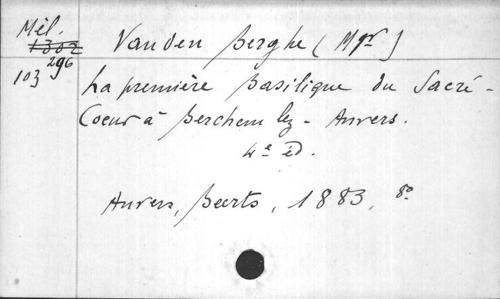 Mél.
1302
296
103
Van den Berghe (Mgr)
La première Basilique du Sacré-
Coeur à Berchem lez-Anvers.
4e éd.
Anvers, Beerts, 1883, 8o